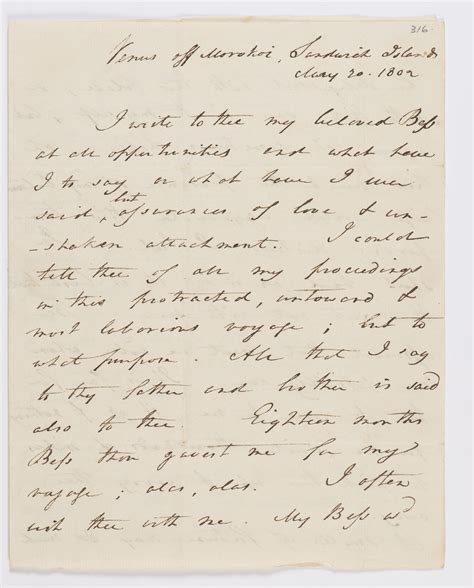 316
Venus off Morokoi, Sandwich Islands
May 20. 1802
I write to thee my beloved Bess
at all opportunities and what have
I to say or what have I ever
but
said, assurances of love & un-
-shaken attachment. I could
tell thee of all my proceedings
in this protracted, untoward &
most laborious voyage; but to
what purpose. All that I say
to thy father and brother is said
also to thee. Eighteen months
Bess thou gavest me for my
voyage; alas, alas. I often
wish thee with me. My Bess wd